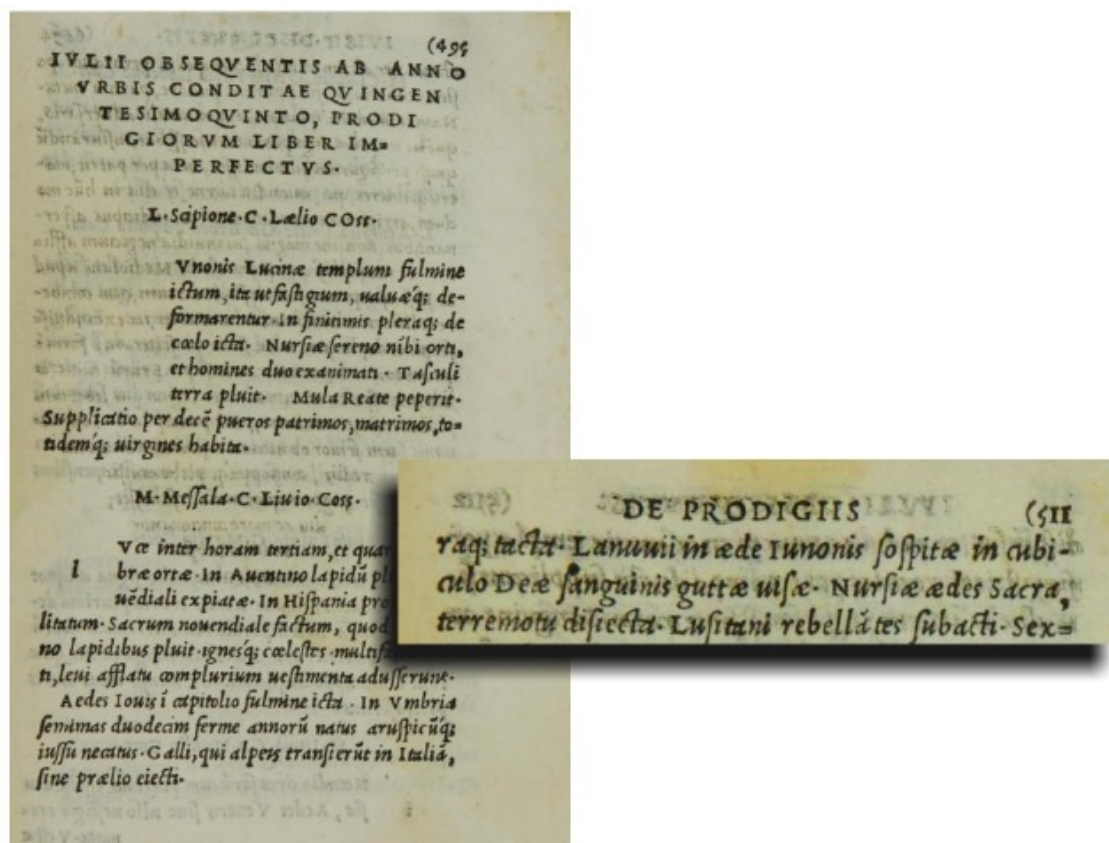 (495
IVLII OBSEQVENTIS AB ANNO
VRBIS CONDITAE QVINGEN
TESIMOQVINTO, PRODI
GIORVM LIBER IM=
PERFECTVS.
L. Scipione. C. Lælio COss.
Vnonis Lucinæ templum fulmine
ictum, ita ut fastigium, ualuæq́; de-
formarentur. In finitimis pleraq; de
cœlo icta. Nursiæ sereno nibi orti,
et homines duo exanimati. Tusculi
terra pluit. Mula Reate peperit.
Supplicatio per decẽ pueros patrimos, matrimos, to=
tidemq́; uirgines habita.
M. Messala. C. Liuio Coss.
l
Vce inter horam tertiam, et quar
bræ ortæ. In Auentino lapidũ pl
uẽdiali expiatæ. In Hispania pro
litatum. Sacrum nouendiale factum, quod
no lapidibus pluit. ignesq; cœlestes multif
ti, leui afflatu complurium uestimenta adusserunt.
Aedes Iouis ĩ capitolio fulmine icta. In Vmbria
semimas duodecim ferme annorũ natus aruspicũq́;
iussu necatus. Galli, qui alpeis transierũt in Italiã,
sine prælio eiecti.
DE PRODIGIIS (511
raq; tacta. Lanuuii in æde Iunonis sospitæ in cubi-
culo Deæ sanguinis guttæ uisæ. Nursiæ ædes Sacra,
terremotu disiecta. Lusitani rebellãtes subacti. Sex=